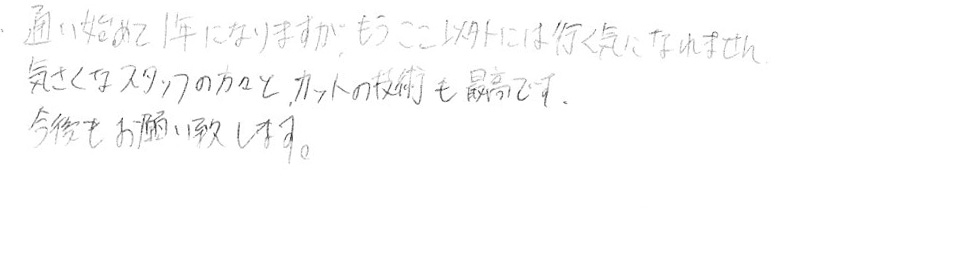 ・通い始めて1年になりますが、もうここ以外には行く気になれません。
気さくなスタッフの方々と、カットの技術も最高です。
今後もお願い致します。